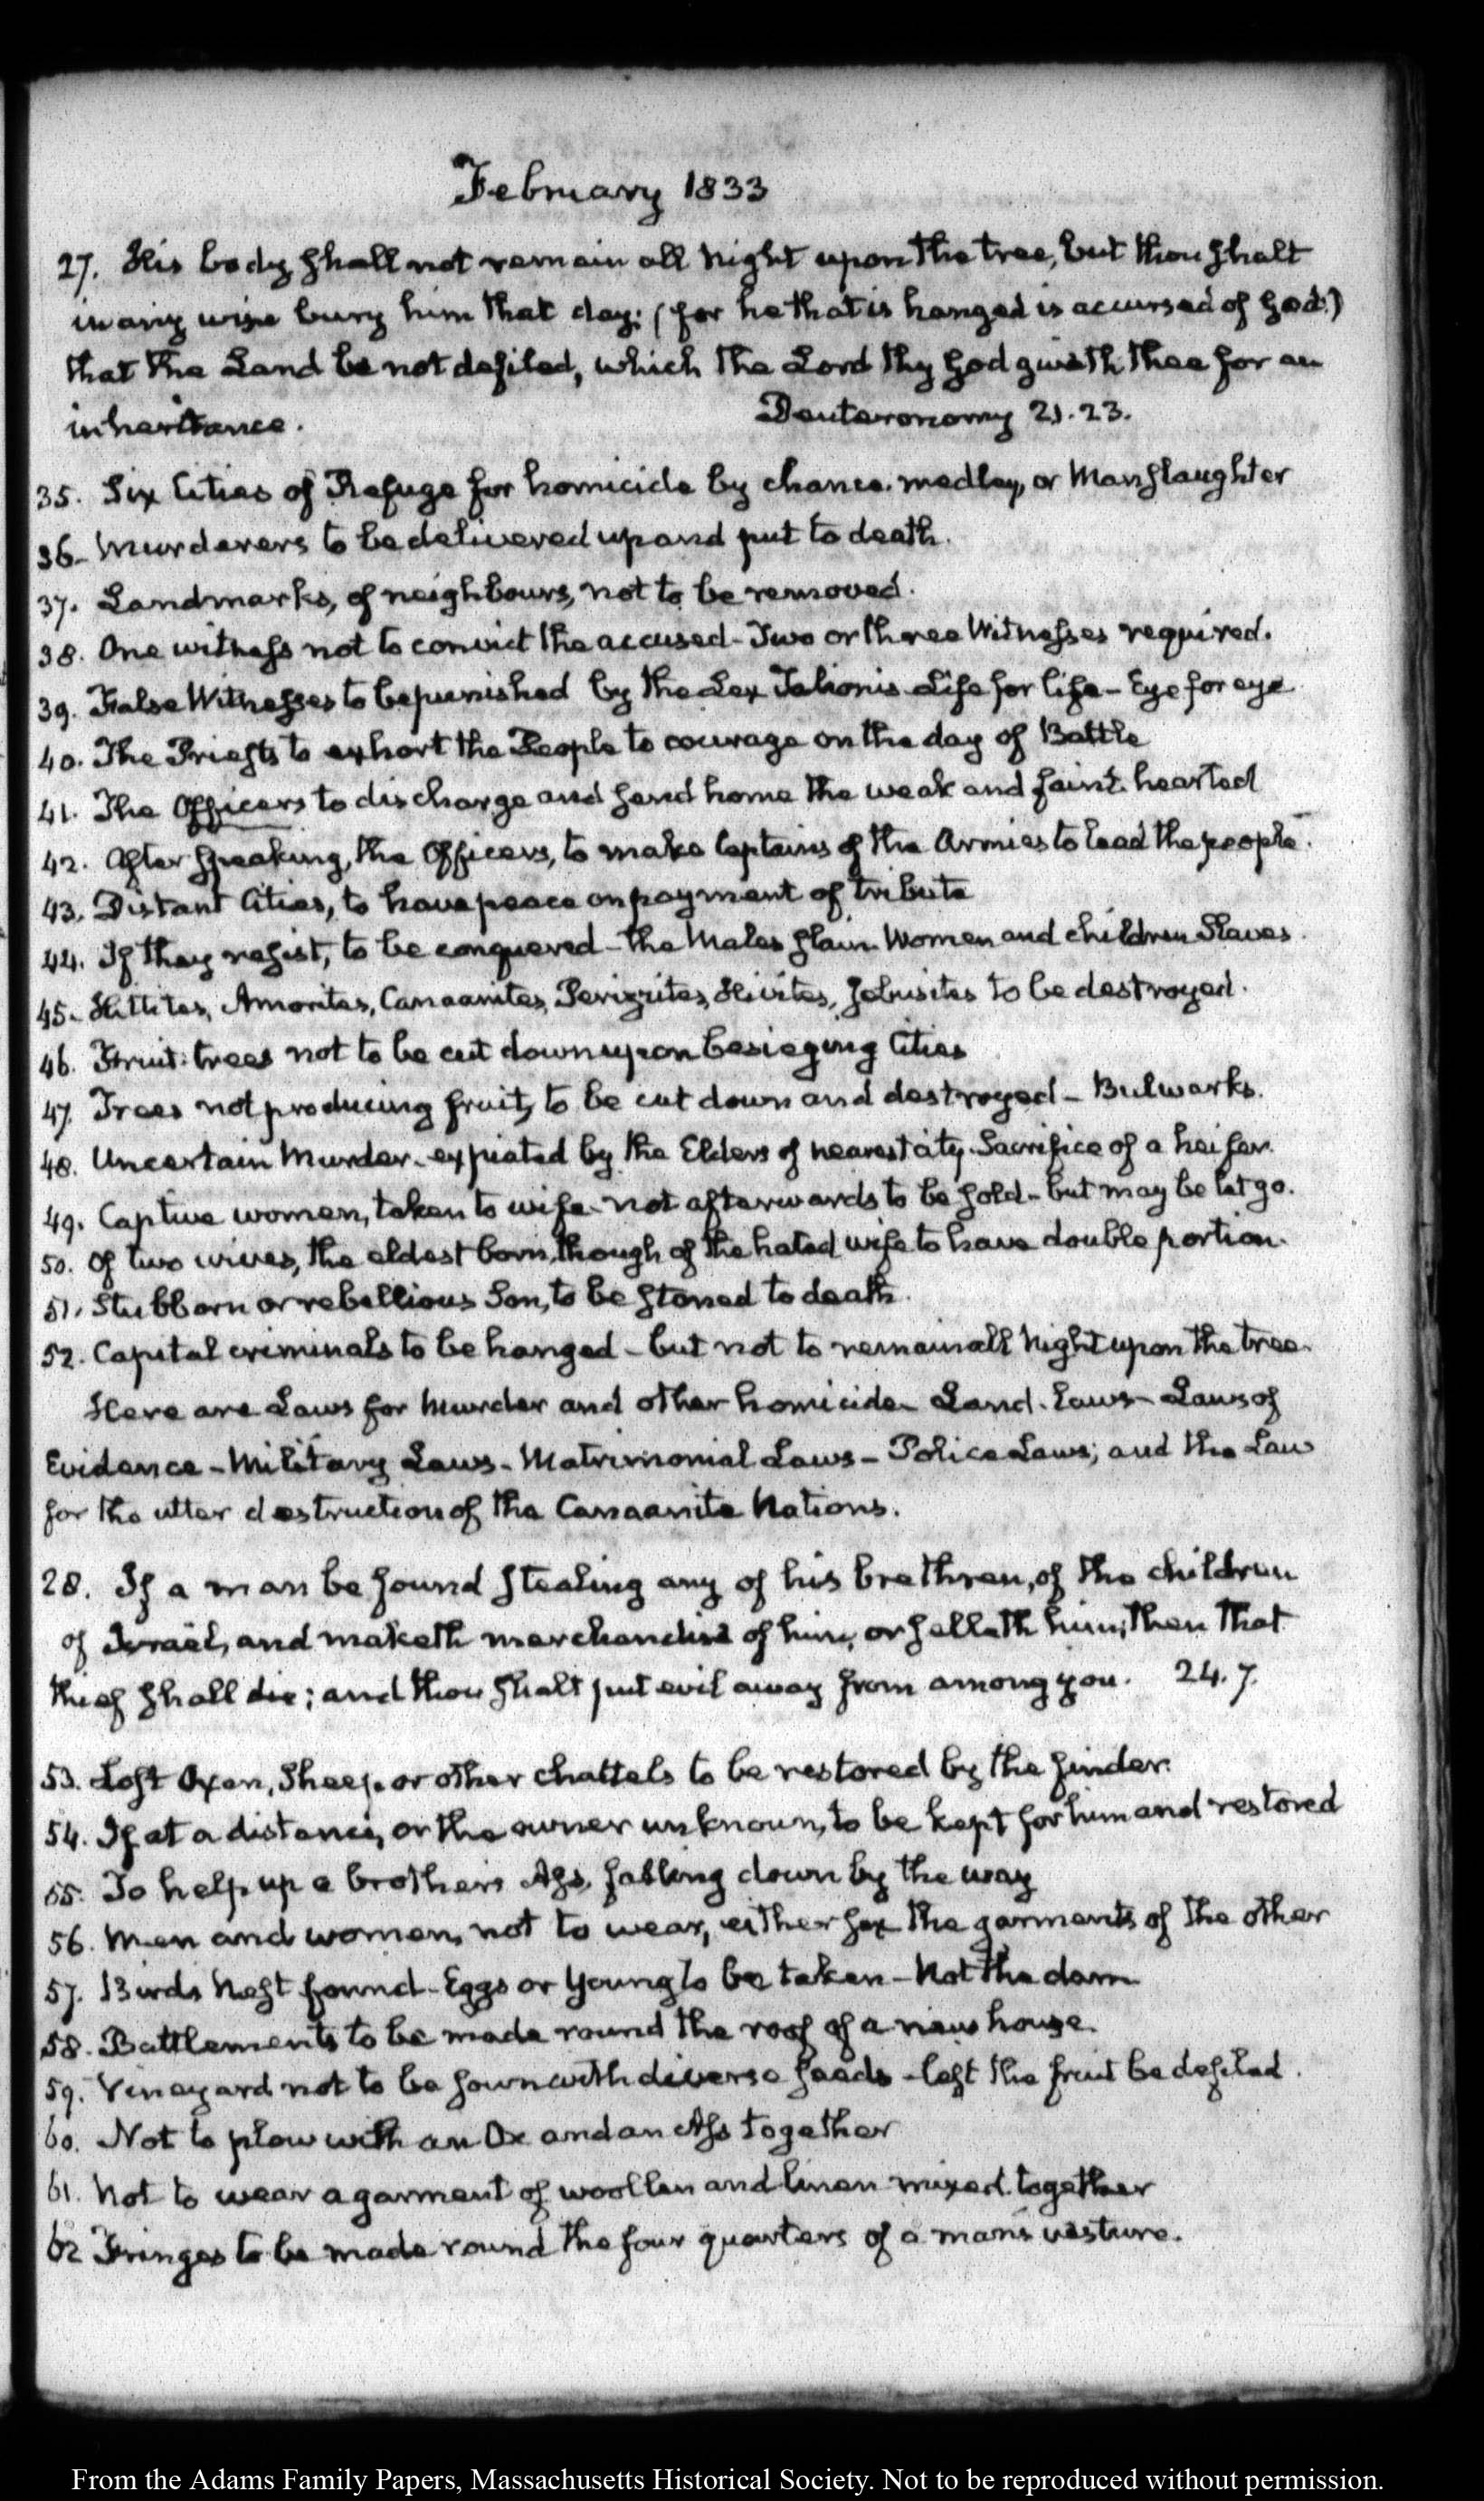 February 1833
27. His body shall not remain all night upon the tree, but thou shalt
in any wise bury him that day: (for he that is hanged is accursed of God:)
that the Land be not defiled, which the Lord thy God giveth thee for an
inheritance. Deuteronomy 21.23.
35. Six Cities of Refuge for homicide by chance-medley, or Manslaughter
36- Murderers to be delivered up and put to death.
37. Landmarks, of neighbours, not to be removed.
38. One witness not to convict the accused - Two or three Witnesses required.
39. False Witnesses to be punished by the Lex Talionis Life for life - Eye for eye
40. The Priests to exhort the People to courage on the day of Battle
41. The Officers to discharge and send home the weak and faint-hearted
42. After speaking, the Officers, to make Captains of the Armies to lead the people.
43. Distant Cities, to have peace on payment of tribute
44. If they resist, to be conquered - the Males slain - Women and children Slaves.
45- Hittites, Amorites, Canaanites, Perizzites, Hivites, Jebusites to be destroyed.
46. Fruit-trees not to be cut down upon besieging Cities
47. Trees not producing fruit, to be cut down and destroyed - Bulwarks.
48. Uncertain Murder - expiated by the Elders of nearest city. Sacrifice of a heifer.
49. Captive women, taken to wife - not afterwards to be sold - but may be let go.
50. Of two wives, the eldest born, though of the hated wife to have double portion.
51. Stubborn or rebellious Son, to be stoned to death.
52. Capital criminals to be hanged - but not to remain all night upon the tree.
Here are Laws for Murder and other homicide - Land-Laws - Laws of
Evidence - Military Laws - Matrimonial Laws - Police Laws; and the Law
for the utter destruction of the Canaanite Nations.
28. If a man be found stealing any of his brethren, of the children
of Israel, and maketh merchandise of him, or selleth him; then that
thief shall die; and thou shalt put evil away from among you. 24.7.
53. Lost Oxen, Sheep, or other chattels to be restored by the finder.
54. If at a distance, or the owner unknown, to be kept for him and restored
55. To help up a brothers Ass, falling down by the way
56. Men and women, not to wear, either sex the garments of the other
57. Birds Nest found - Eggs or Young to be taken - Not the dam
58. Battlements to be made round the roof of a new house.
59. Vineyard not to be sown with diverse seeds - lest the fruit be defiled.
60. Not to plow with an Ox and an Ass together
61. Not to wear a garment of woollen and linen mixed together
62 Fringes to be made round the four quarters of a man's vesture.
From the Adams Family Papers, Massachusetts Historical Society. Not to be reproduced without permission.